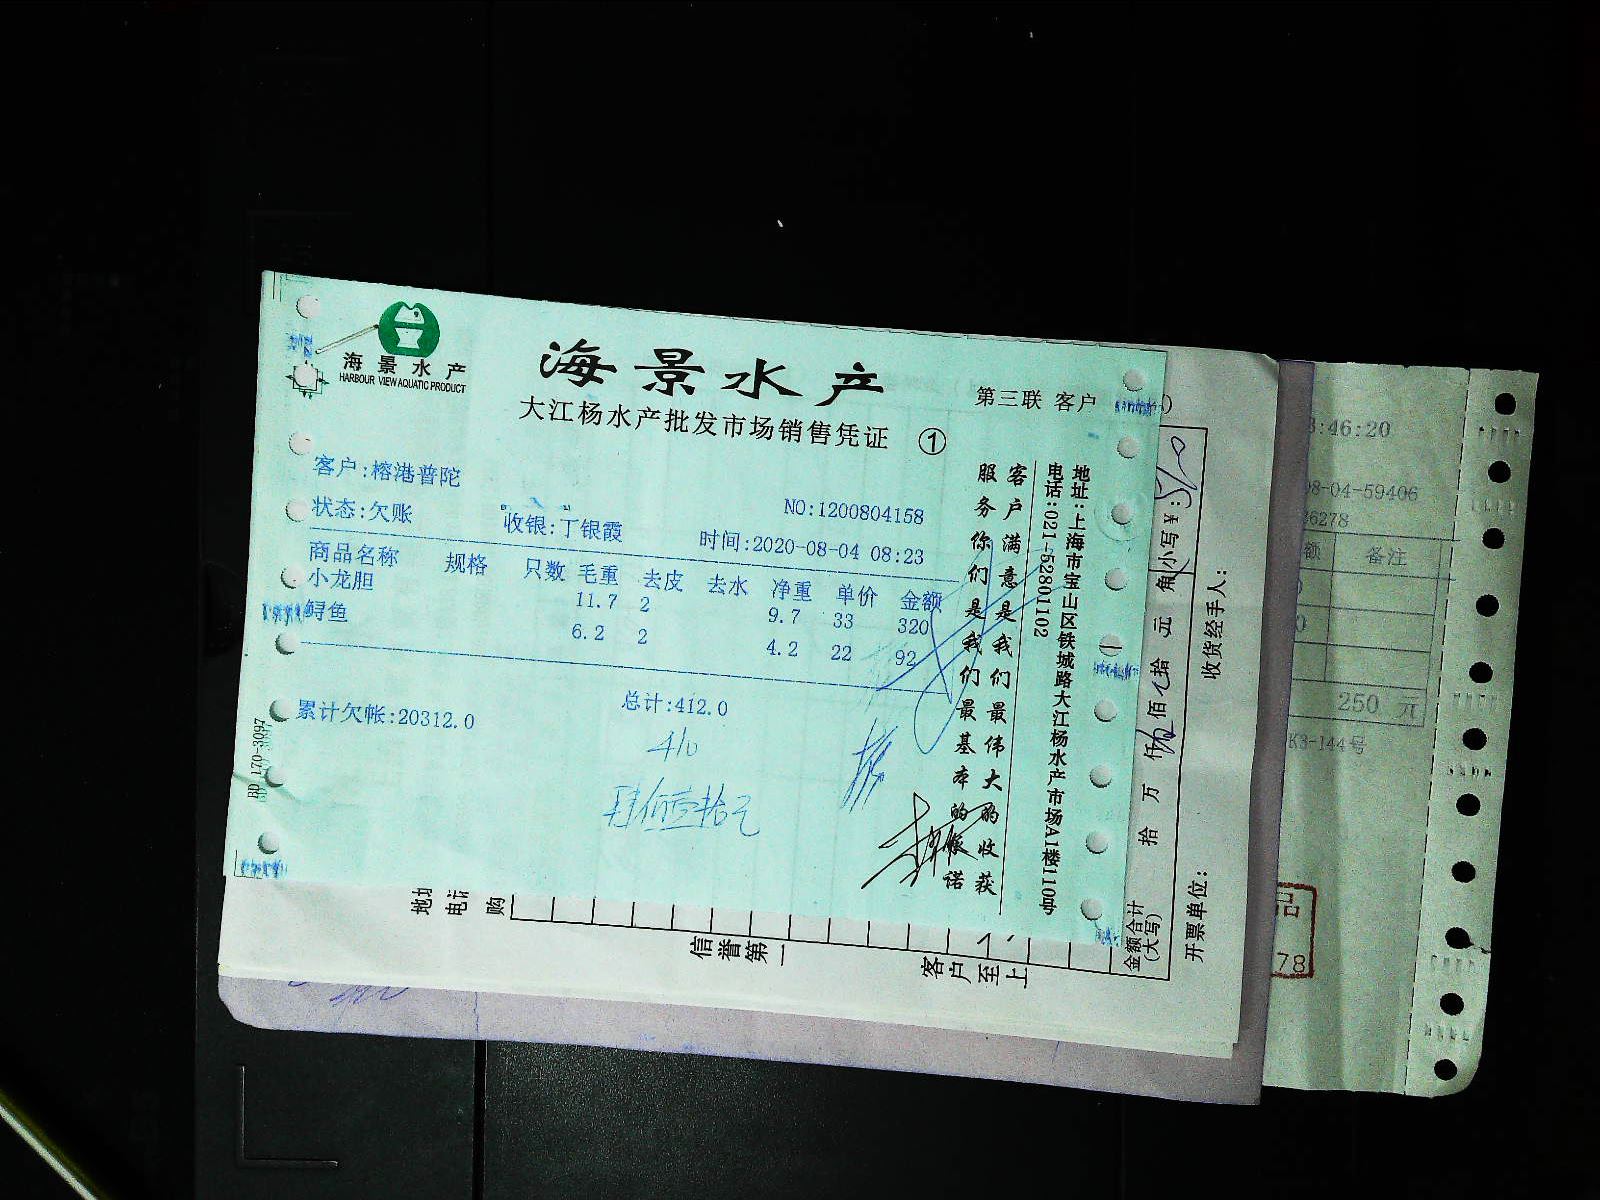 海景水产
HARBOUR VIEW AQUATIC PRODUCT
海景水产
大江杨水产批发市场销售凭证 ①
第三联 客户
客户:榕港普陀
NO:1200804158
状态:欠账 收银:丁银霞 时间:2020-08-04 08:23
商品名称 规格 只数 毛重 去皮 去水 净重 单价 金额
小龙胆 11.7 2 9.7 33 320
鲟鱼 6.2 2 4.2 22 92
累计欠帐:20312.0 总计:412.0
410
肆佰壹拾元
客户满意是我们最伟大的收获
服务你们是我们最基本的承诺
地址:上海市宝山区铁城路大江杨水产市场A1楼110号
电话:021-52801102
BD 170-3097
地
电
购
信誉第一
客户至上
金额合计
(大写)
拾 万 仟 佰 拾 元 角
小写¥:
开票单位:
收货经手人:
:46:20
08-04-59406
36278
额 备注
250 元
K3-144号
78